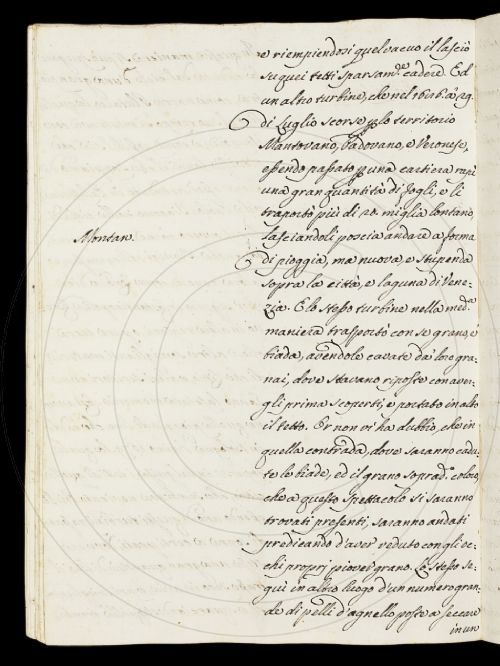 e riempiendosi quel vacuo il lasciò
su quei tetti sparsam.te cadere. Ed
un altro turbine, che nel 1686. à 29.
di Luglio scorse p lo territorio
Mantovano, Padovano, e Veronese,
essendo passato p una cartiera rapì
una gran quantità di fogli, e li
traportò più di 20. miglia lontano,
lasciandoli poscia andare a forma
Montan.
di pioggia, ma nuova, e stupenda
sopra la città, e laguna di Vene-
zia. E lo stesso turbine nella med.a
maniera trasportò con se grano, e
biada, avendole cavate da loro gra-
nai, dove stavano riposte con aver-
gli prima scoperti, e portato in alto
il tetto. Et non vi ha dubbio, che in
quella contrada, dove saranno cadu-
te le biade, ed il grano soprad.o coloro,
che a questo spettacolo si saranno
trovati presenti, saranno andati
predicando d'aver veduto con gli oc-
chi proprj piover grano. Lo stesso se-
guì in altro luogo d'un numero gran-
de di pelli d'agnello poste a seccare
in un